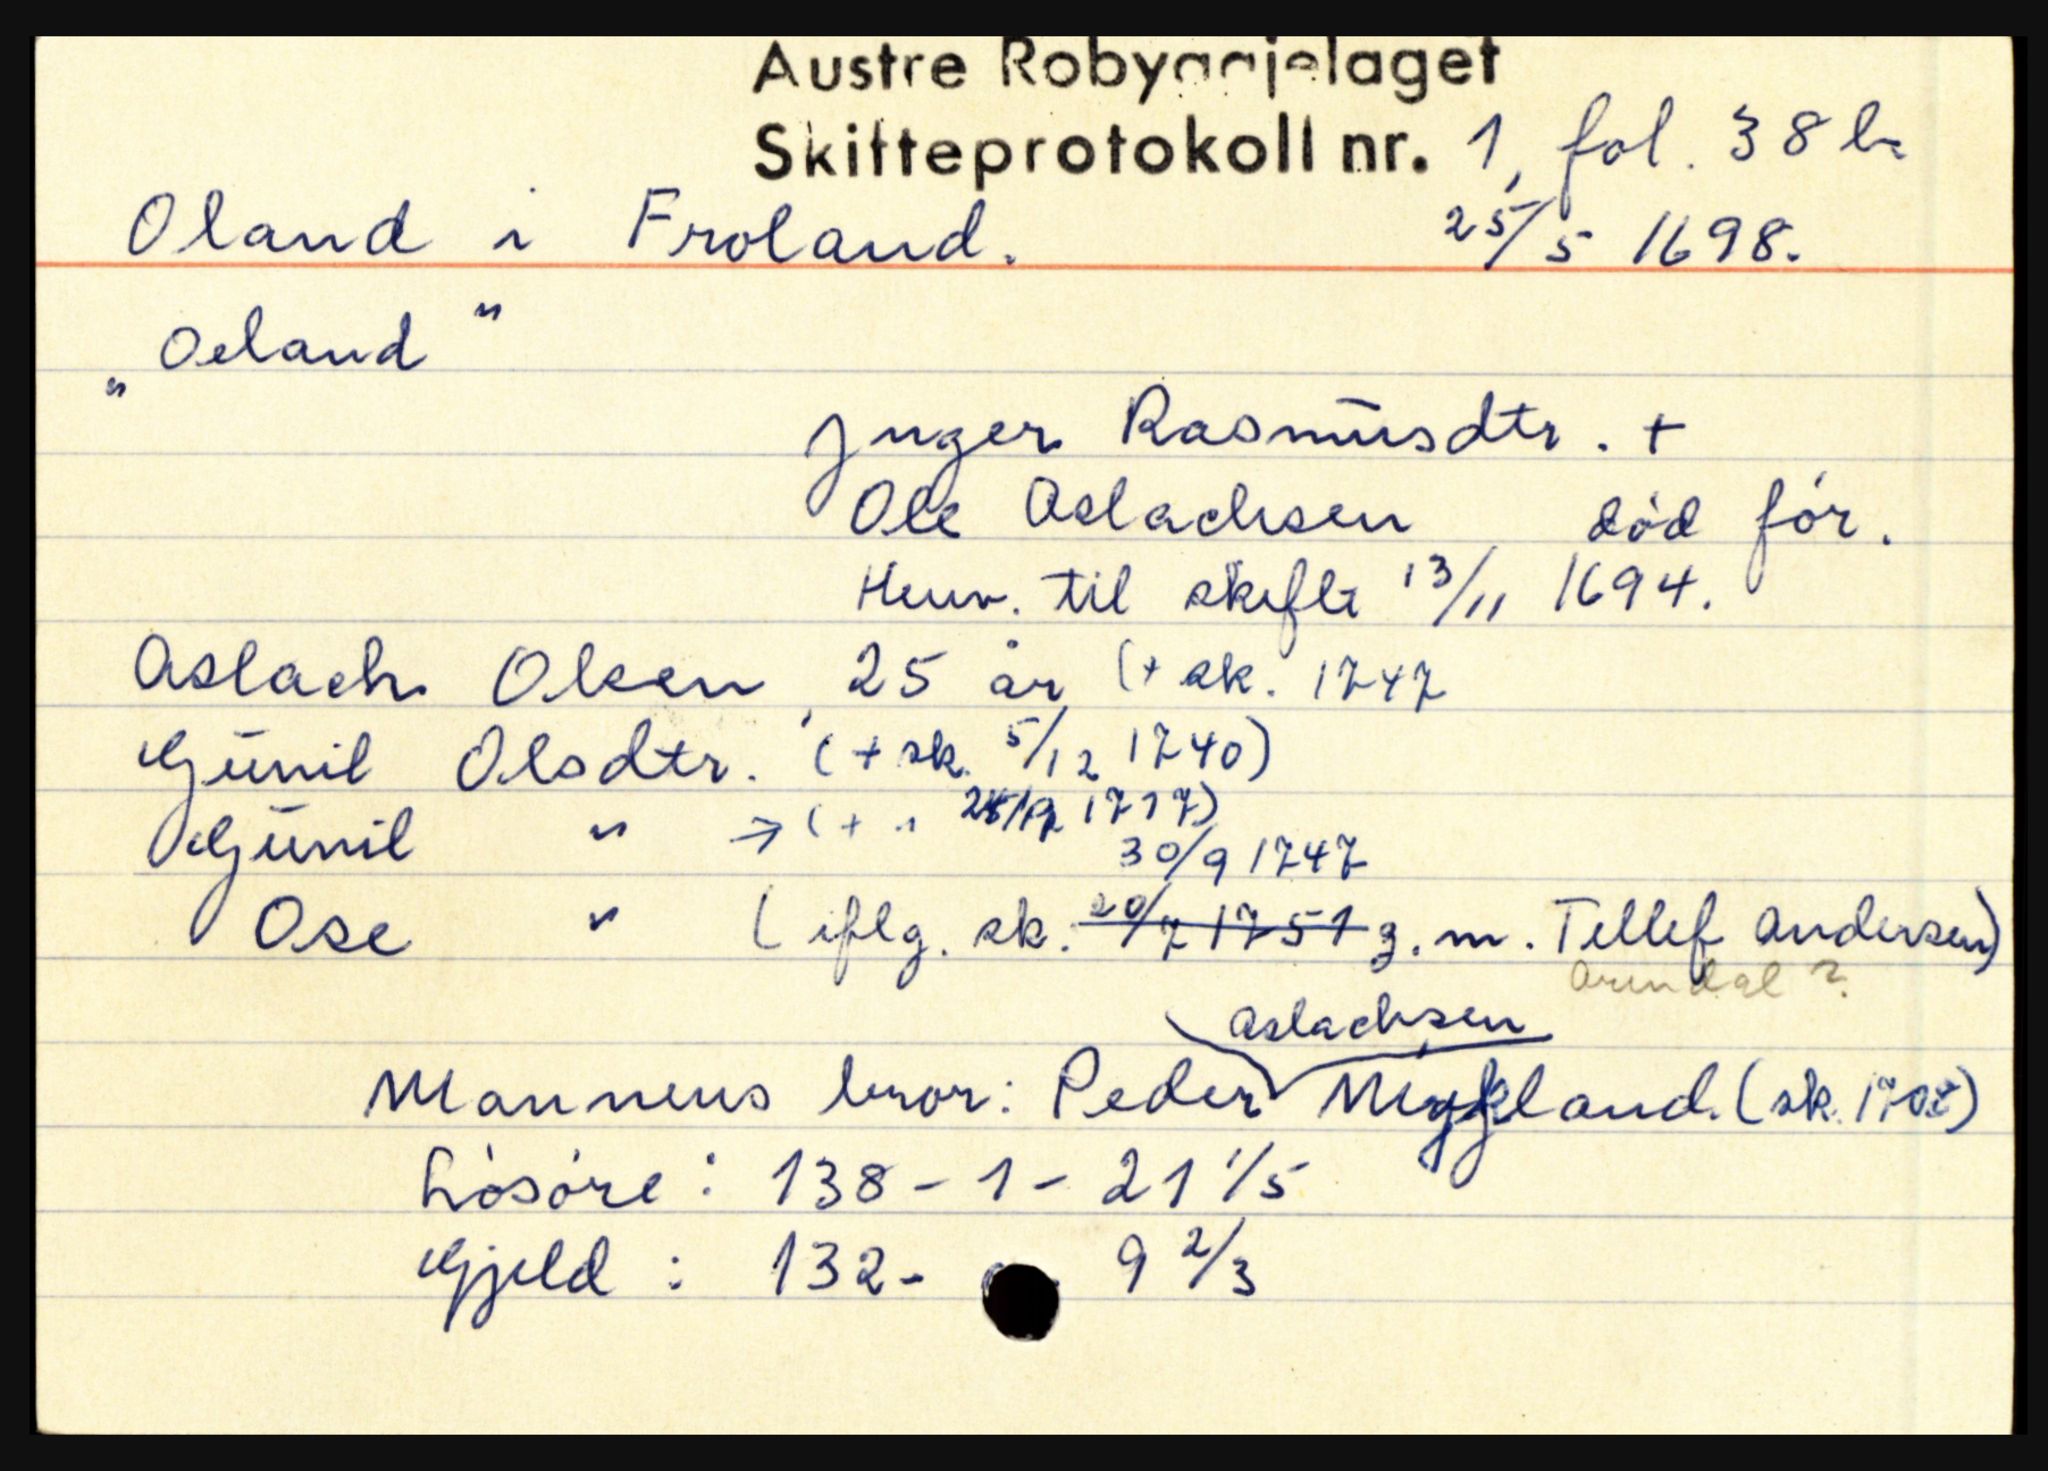 Austre Robyggjelaget
Skifteprotokoll nr. 1, fol. 38 b.
Oland i Froland. 25/5 1698.
„Oeland"
Inger Rasmusdtr. +
Ole Aslachsen død før.
Henv. til skifte 13/11 1694.
Aslach Olsen, 25 år (+ sk. 1747
Gunil Olsdtr. (+ sk. 5/12 1740)
Gunil " → (+ " 1717)
30/9 1747
Ose " (iflg. sk. 20/7 1751 g. m. Tellef Andersen)
Arendal ?
Aslachsen
Mannens bror: Peder Mykland. (sk. 1702)
Løsøre: 138 - 1 - 21 1/5
Gjeld : 132 - 9 2/3